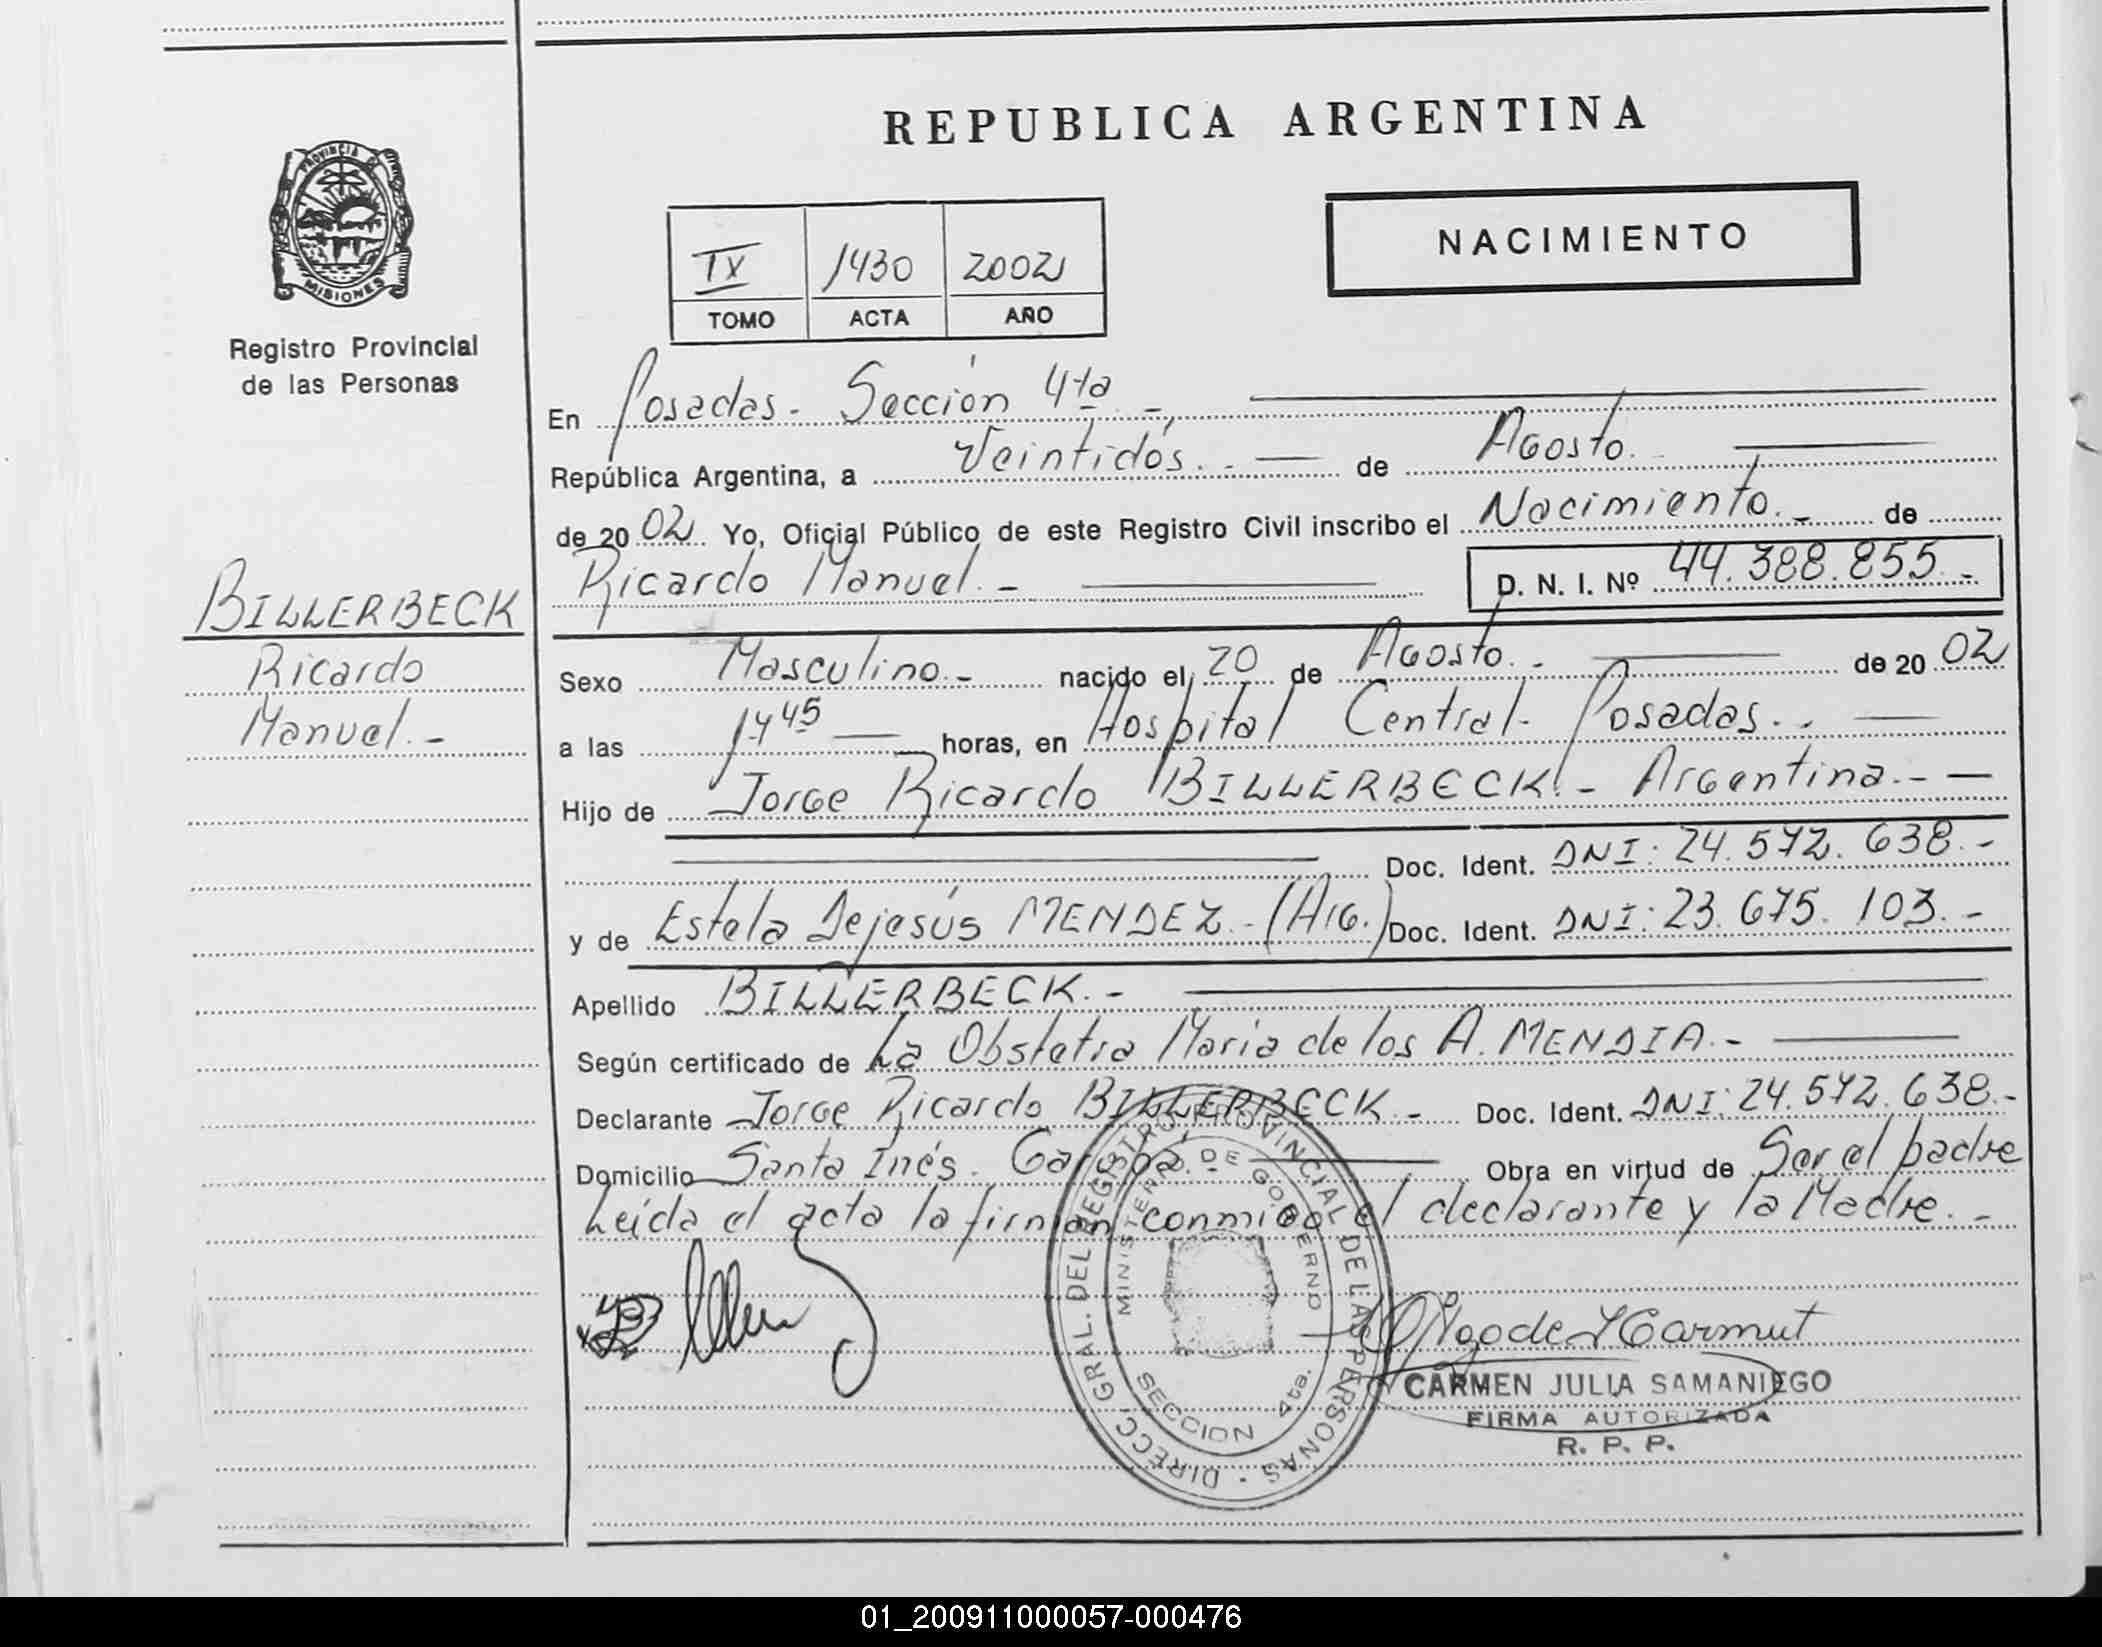 REPUBLICA ARGENTINA
PROVINCIA
MISIONES
Registro Provincial
de las Personas
NACIMIENTO
IX 1430 2002
TOMO ACTA AÑO
En Posadas.- Sección 4ta.-
República Argentina, a Veintidós.- de Agosto.-
de 2002 Yo, Oficial Público de este Registro Civil inscribo el Nacimiento.- de
Ricardo Manuel.- D. N. I. Nº 44.388.855.-
BILLERBECK
Ricardo
Manuel.-
Sexo Masculino.- nacido el 20 de Agosto.- de 2002
a las 1445 horas, en Hospital Central- Posadas.-
Hijo de Jorge Ricardo BILLERBECK.- Argentina.-
Doc. Ident. DNI: 24.572.638.-
y de Estela Dejesús MENDEZ.- (Arg.) Doc. Ident. DNI: 23.675.103.-
Apellido BILLERBECK.-
Según certificado de La Obstetra Maria de los A. MENDIA.-
Declarante Jorge Ricardo BILLERBECK.- Doc. Ident. DNI: 24.572.638.-
Domicilio Santa Inés. Garupá.- Obra en virtud de Ser el padre
Leída el acta la firman conmigo el declarante y la Madre.-
DIRECC. GRAL. DEL REGISTRO PROVINCIAL DE LAS PERSONAS
MINISTERIO DE GOBIERNO
SECCION 4ta.
CARMEN JULIA SAMANIEGO
FIRMA AUTORIZADA
R. P. P.
01_200911000057-000476